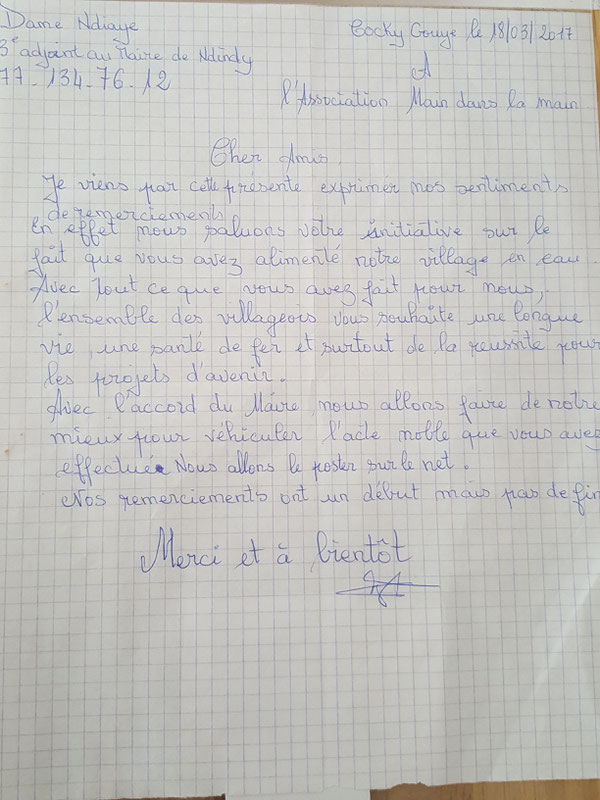 Dame Ndiaye
Cocky Gouye le 18/03/2017
3e adjoint au Maire de Ndindy
77-134-76-12
A
l'Association Main dans la main
Cher Amis
Je viens par cette présente exprimer nos sentiments
de remerciements
En effet nous saluons votre initiative sur le
fait que vous avez alimenté notre village en eau.
Avec tout ce que vous avez fait pour nous,
l'ensemble des villageois vous souhaite une longue
vie, une santé de fer et surtout de la réussite pour
les projets d'avenir.
Avec l'accord du Maire, nous allons faire de notre
mieux pour véhiculer l'acte noble que vous avez
effectué. Nous allons le poster sur le net.
Nos remerciements ont un début mais pas de fin
Merci et à bientôt